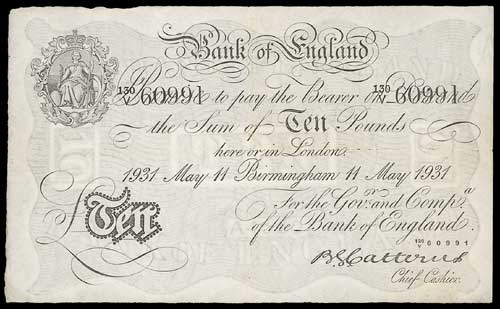 Bank of England
130/V 60991 Promise to pay the Bearer on Demand 130/V 60991
the Sum of Ten Pounds
here or in London
1931 May 11 Birmingham 11 May 1931
For the Govr. and Compa.
of the Bank of England.
£Ten
130/V 60991
B.G. Catterns
Chief Cashier.